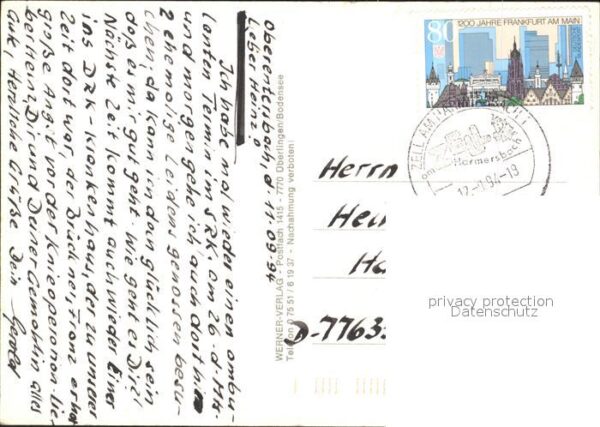 oberentersbach d 11.09.94
Lieber Heinz!
Ich habe mal wieder einen ambu-
lanten Termin im SRK am 26. d. Mts.
und morgen gehe ich auch dorthin
2 ehemalige Leidensgenossen besu-
chen, da kann ich von glücklich sein
daß es mir gut geht. Wie geht es Dir?
Nächste Zeit kommt auch wieder Einer
ins DRK-Krankenhaus, der zu unserer
Zeit dort war, da Brückner, Franz er hat
große Angst vor der Knieoperation. Lie-
ber Heinz, Dir und Deiner Gemahlin alles
Gute, Herzliche Grüße Dein
WERNER-VERLAG - Postfach 1415 - 7770 Überlingen/Bodensee
Telefon 0 75 51 / 6 19 37 - Nachahmung verboten!
80
1200 JAHRE FRANKFURT AM MAIN
DEUTSCHE BUNDESPOST
ZELL AM HARMERSBACH
am Harmersbach
12.-9.94-19
Herrn
Hei
Ha
D-7763
privacy protection
Datenschutz